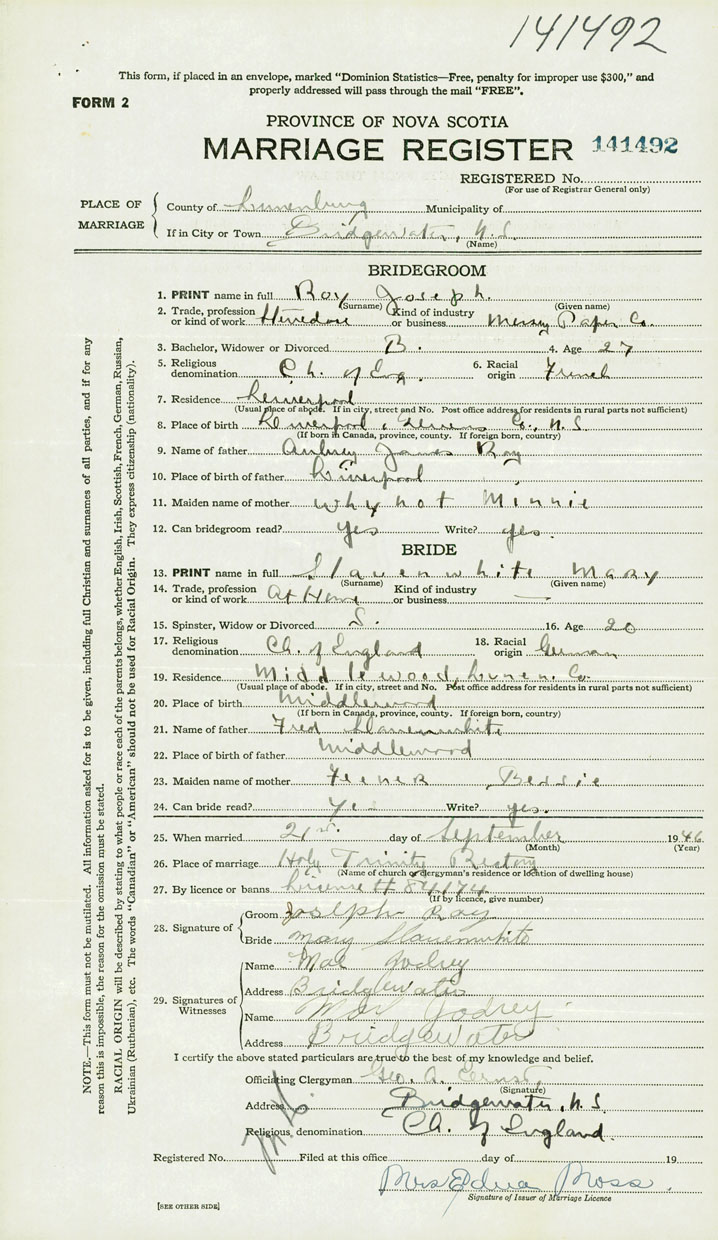 141492
This form, if placed in an envelope, marked "Dominion Statistics—Free, penalty for improper use $300," and
properly addressed will pass through the mail "FREE".
FORM 2
PROVINCE OF NOVA SCOTIA
MARRIAGE REGISTER 141492
REGISTERED No.
(For use of Registrar General only)
PLACE OF MARRIAGE
County of Lunenburg Municipality of
If in City or Town Bridgewater, N.S.
(Name)
BRIDEGROOM
1. PRINT name in full Roy Joseph.
(Surname) (Given name)
2. Trade, profession or kind of work Stevedore Kind of industry or business Mersey Paper Co.
3. Bachelor, Widower or Divorced B. 4. Age 27
5. Religious denomination Ch. of Eng. 6. Racial origin French
7. Residence Liverpool
(Usual place of abode. If in city, street and No. Post office address for residents in rural parts not sufficient)
8. Place of birth Liverpool, Queens Co., N.S.
(If born in Canada, province, county. If foreign born, country)
9. Name of father Aubrey James Roy
10. Place of birth of father Liverpool
11. Maiden name of mother Whynot Minnie
12. Can bridegroom read? yes Write? yes.
BRIDE
13. PRINT name in full Slauenwhite Mary
(Surname) (Given name)
14. Trade, profession or kind of work At Home Kind of industry or business —
15. Spinster, Widow or Divorced S. 16. Age 20
17. Religious denomination Ch. of England 18. Racial origin German
19. Residence Middlewood, Lunen. Co.
(Usual place of abode. If in city, street and No. Post office address for residents in rural parts not sufficient)
20. Place of birth Middlewood
(If born in Canada, province, county. If foreign born, country)
21. Name of father Fred Slauenwhite
22. Place of birth of father Middlewood
23. Maiden name of mother Feener Bessie
24. Can bride read? Yes Write? yes.
25. When married 21st. day of September 1946
(Month) (Year)
26. Place of marriage Holy Trinity Rectory
(Name of church or clergyman's residence or location of dwelling house)
27. By licence or banns License # 84174
(If by licence, give number)
28. Signature of
Groom Joseph Roy
Bride Mary Slauenwhite
29. Signatures of Witnesses
Name Mae Godrey
Address Bridgewater
Name Godrey
Address Bridgewater
I certify the above stated particulars are true to the best of my knowledge and belief.
Officiating Clergyman Geo. A. Ernst,
(Signature)
Address Bridgewater, N.S.
Religious denomination Ch. of England.
Registered No. Filed at this office day of 19
Mrs Edna Moss.
Signature of Issuer of Marriage Licence
[SEE OTHER SIDE]
NOTE.—This form must not be mutilated. All information asked for is to be given, including full Christian and surnames of all parties, and if for any
reason this is impossible, the reason for the omission must be stated.
RACIAL ORIGIN will be described by stating to what people or race each of the parents belongs, whether English, Irish, Scottish, French, German, Russian,
Ukrainian (Ruthenian), etc. The words "Canadian" or "American" should not be used for Racial Origin. They express citizenship (nationality).